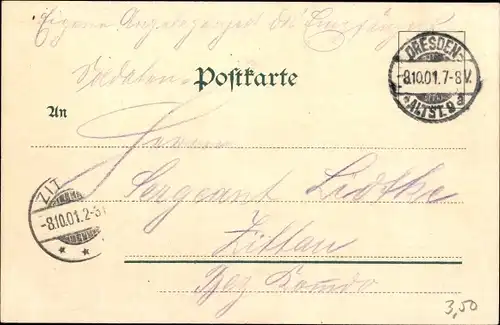 Eigene Angelegenheit des Empfängers
DRESDEN-
Soldaten
Postkarte
-8.10.01.7-8V.
*ALTST.8 d
An
Herrn
ZIT
Sergeant Liedtke
-8.10.01.2-3
Zittau
* *
Bez Komdo
3,50